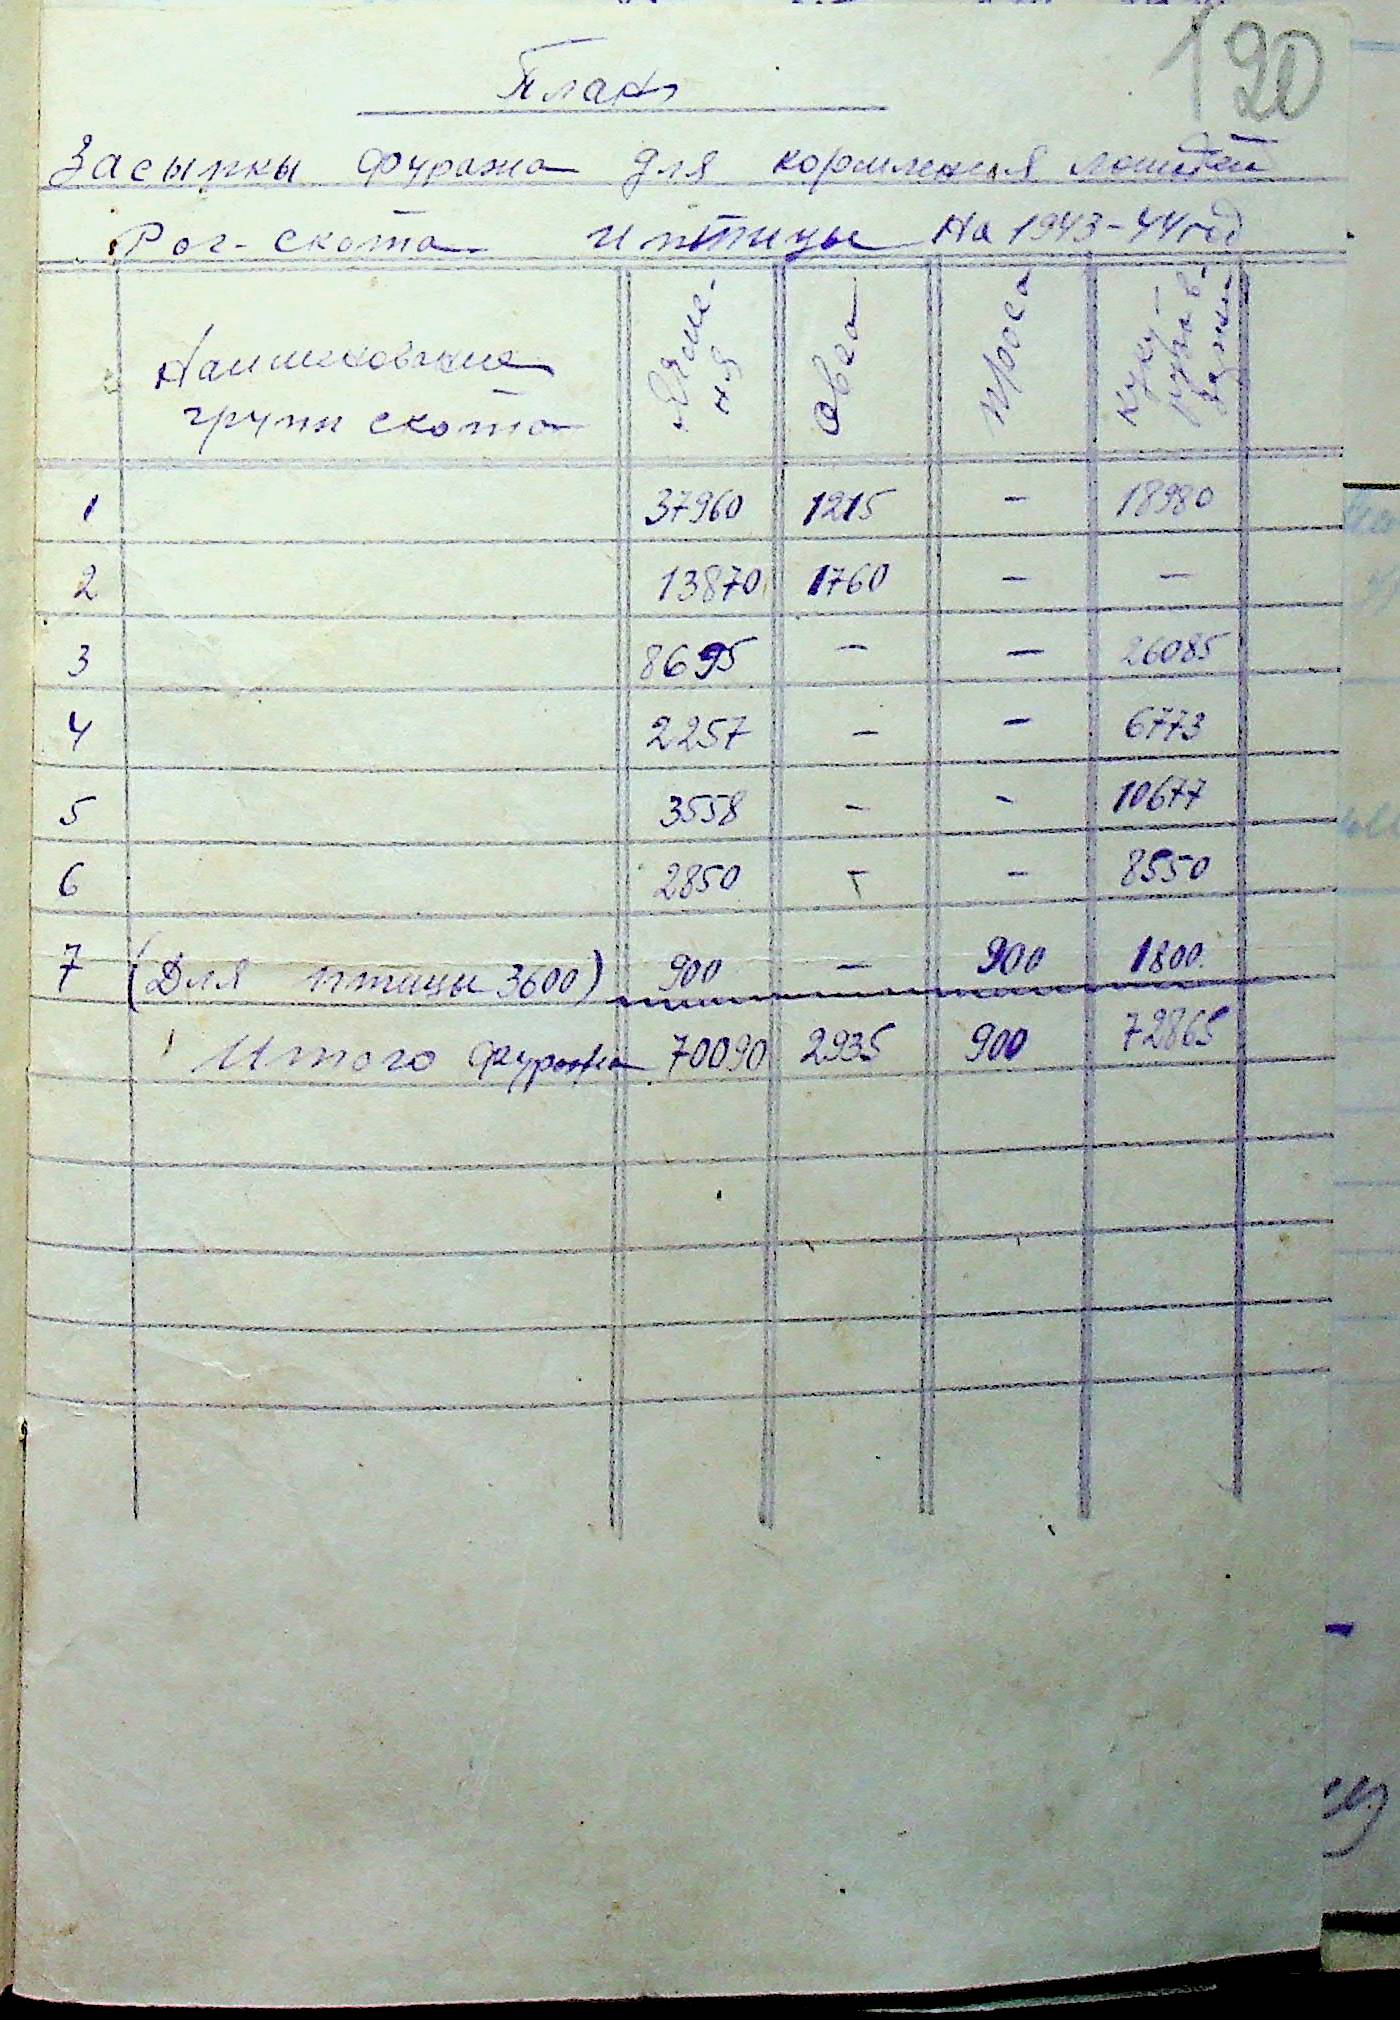 120
План
Засыпки фуража для кормления лошадей
Рог-скота и птицы на 1943-44 год
Наименование групп скота Ячме-ня Овса Проса Куку-руза в-
1 37960 1215 - 18980
2 13870 1760 - -
3 8695 - - 26085
4 2257 - - 6773
5 3558 - - 10677
6 2850 - - 8550
7 (Для птицы 3600) 900 - 900 1800
Итого фуража 70090 2935 900 72865